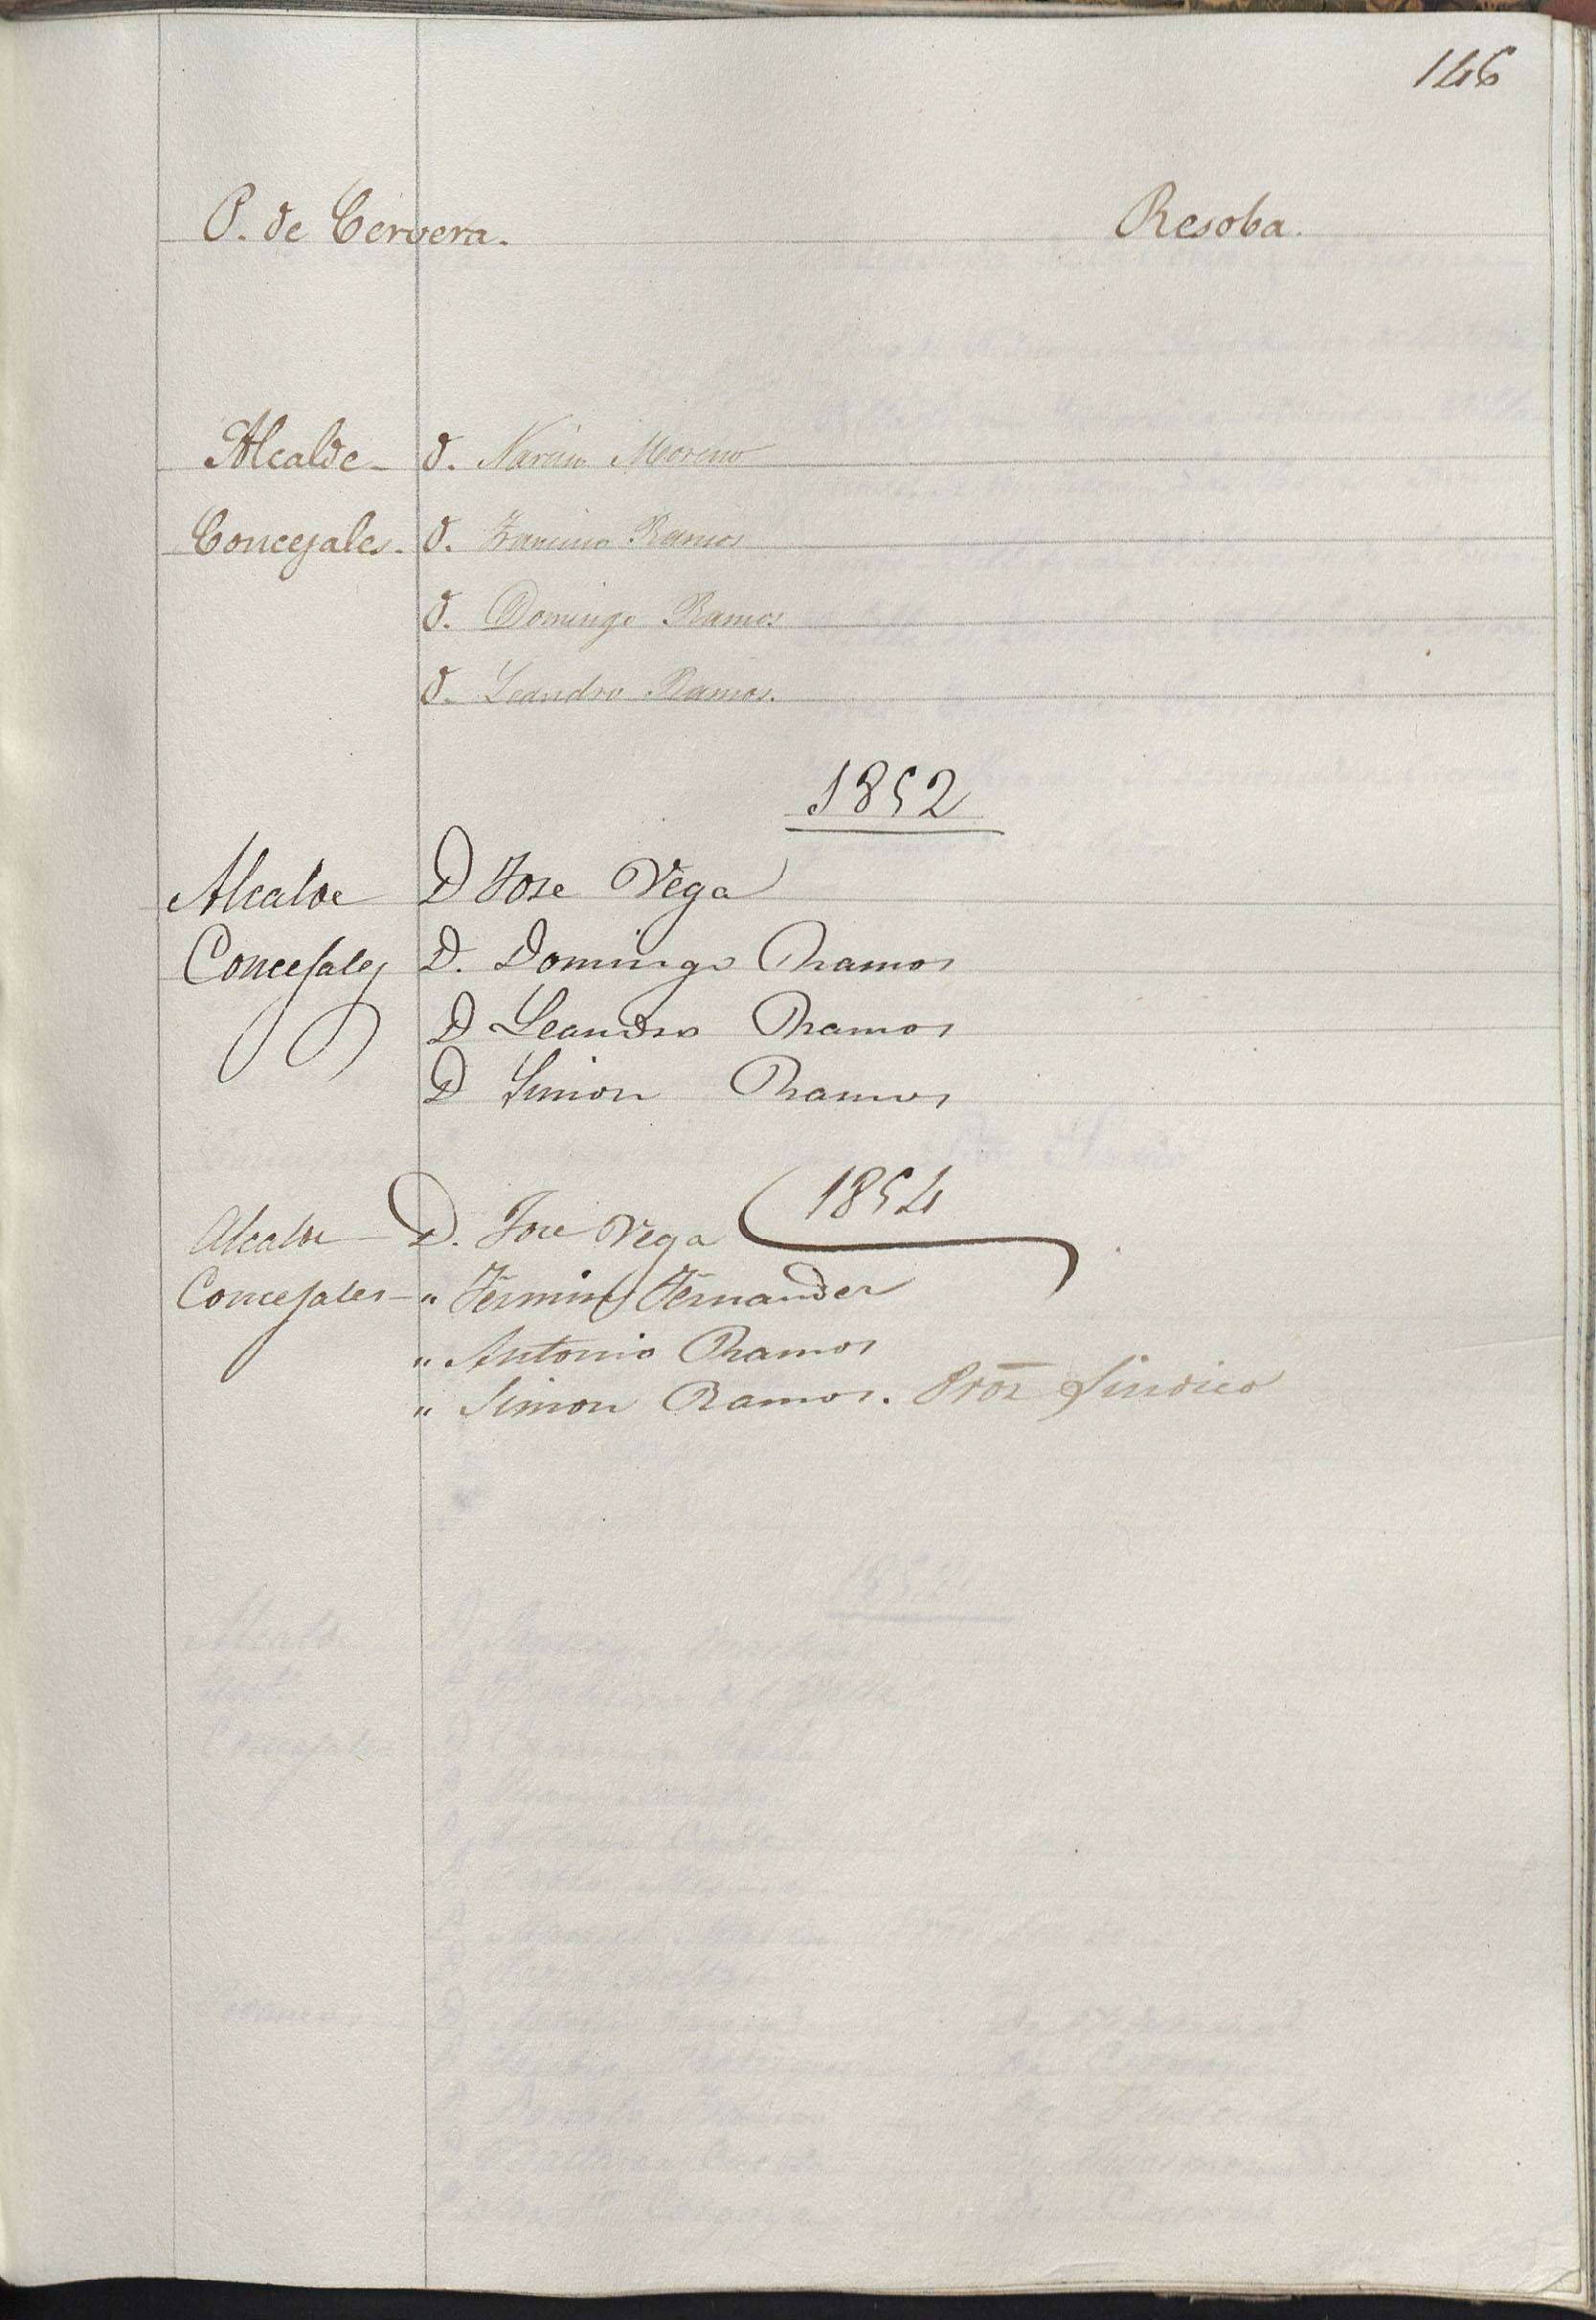 146
P. de Cervera. Resoba.
Alcalde - D. Narciso Moreno
Concejales - D. Francisco Ramos
D. Domingo Ramos
D. Leandro Ramos.
1852
Alcalde D Jose Vega
Concejales D. Domingo Ramos
D Leandro Ramos
D Simon Ramos
1854
Alcalde - D. Jose Vega
Concejales - " Fermin Fernandez
" Antonio Ramos
" Simon Ramos. Pror Sindico